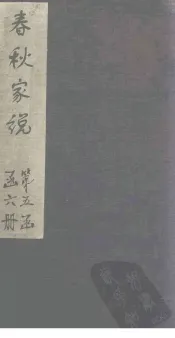 春秋家說
第五函
函六册